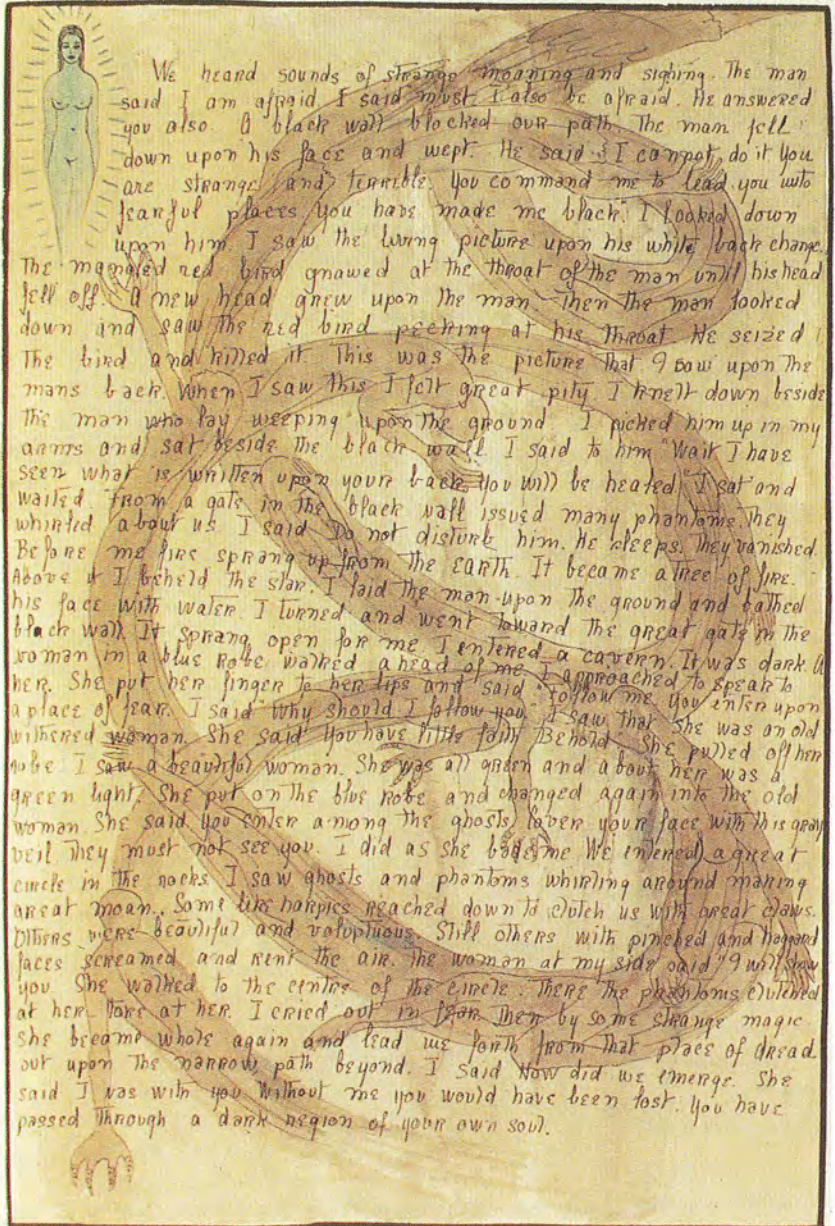 We heard sounds of strange moaning and sighing. The man
said I am afraid. I said must I also be afraid. He answered
you also. A black wall blocked our path. The man fell
down upon his face and wept. He said "I cannot do it You
are strange and terrible. You command me to lead you unto
fearful places you have made me black." I looked down
upon him. I saw the living picture upon his white back change.
The mangled red bird gnawed at the throat of the man until his head
fell off. A new head grew upon the man. Then the man looked
down and saw the red bird pecking at his throat. He seized
The bird and killed it. This was the picture that I saw upon the
mans back. When I saw this I felt great pity. I knelt down beside
the man who lay weeping upon the ground. I picked him up in my
arms and sat beside the black wall. I said to him "Wait I have
seen what is written upon your back, you will be healed." I sat and
waited. From a gate in the black wall issued many phantoms. They
whirled about us. I said Do not disturb him. He sleeps. They vanished.
Before me fire sprang up from the earth. It became a tree of fire.
Above it I beheld the star. I laid the man upon the ground and bathed
his face with water. I turned and went toward the great gate in the
black wall. It sprang open for me I entered a cavern. It was dark. A
woman in a blue robe walked ahead of me I approached to speak to
her. She put her finger to her lips and said "follow me you enter upon
a place of fear. I said "Why should I follow you." I saw that she was an old
withered woman. She said You have little faith Behold" She pulled off her
robe I saw a beautiful woman. She was all green and about her was a
green light. She put on the blue robe and changed again into the old
woman. She said you enter among the ghosts, cover your face with this gray
veil. They must not see you. I did as she bade me We entered a great
circle in the rocks I saw ghosts and phantoms whirling around making
great moan. Some like harpies reached down to clutch us with great claws.
Others were beautiful and voluptuous. Still others with pinched and haggard
faces screamed and rent the air. The woman at my side said "I will show
you. She walked to the centre of the circle. There the phantoms clutched
at her. Tore at her. I cried out in fear. Then by some strange magic
she became whole again and lead me forth from that place of dread.
out upon the narrow path beyond. I said How did we emerge. She
said I was with you Without me you would have been lost. You have
passed through a dark region of your own soul.